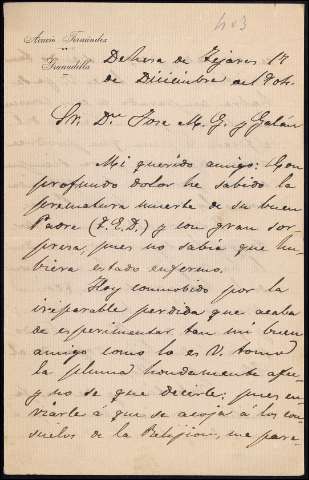 403
Acacio Fernández
Granadilla
Dehesa de Tejares 17
de Diciembre de 1904.
Sr. Dn. Jose M. G. y Galán
Mi querido amigo: Con
profundo dolor he sabido la
prematura muerte de su buen
Padre (q.E.D.) y con gran sor-
presa, pues no sabía que hu-
biera estado enfermo.
Hoy conmobido por la
irreparable perdida que acaba
de esperimentar tan mi buen
amigo como lo es V. tomo
la pluma hondamente afec
y no se que decirle: pues en-
viarle á que se acoja á los con-
suelos de la Religion, me pare-